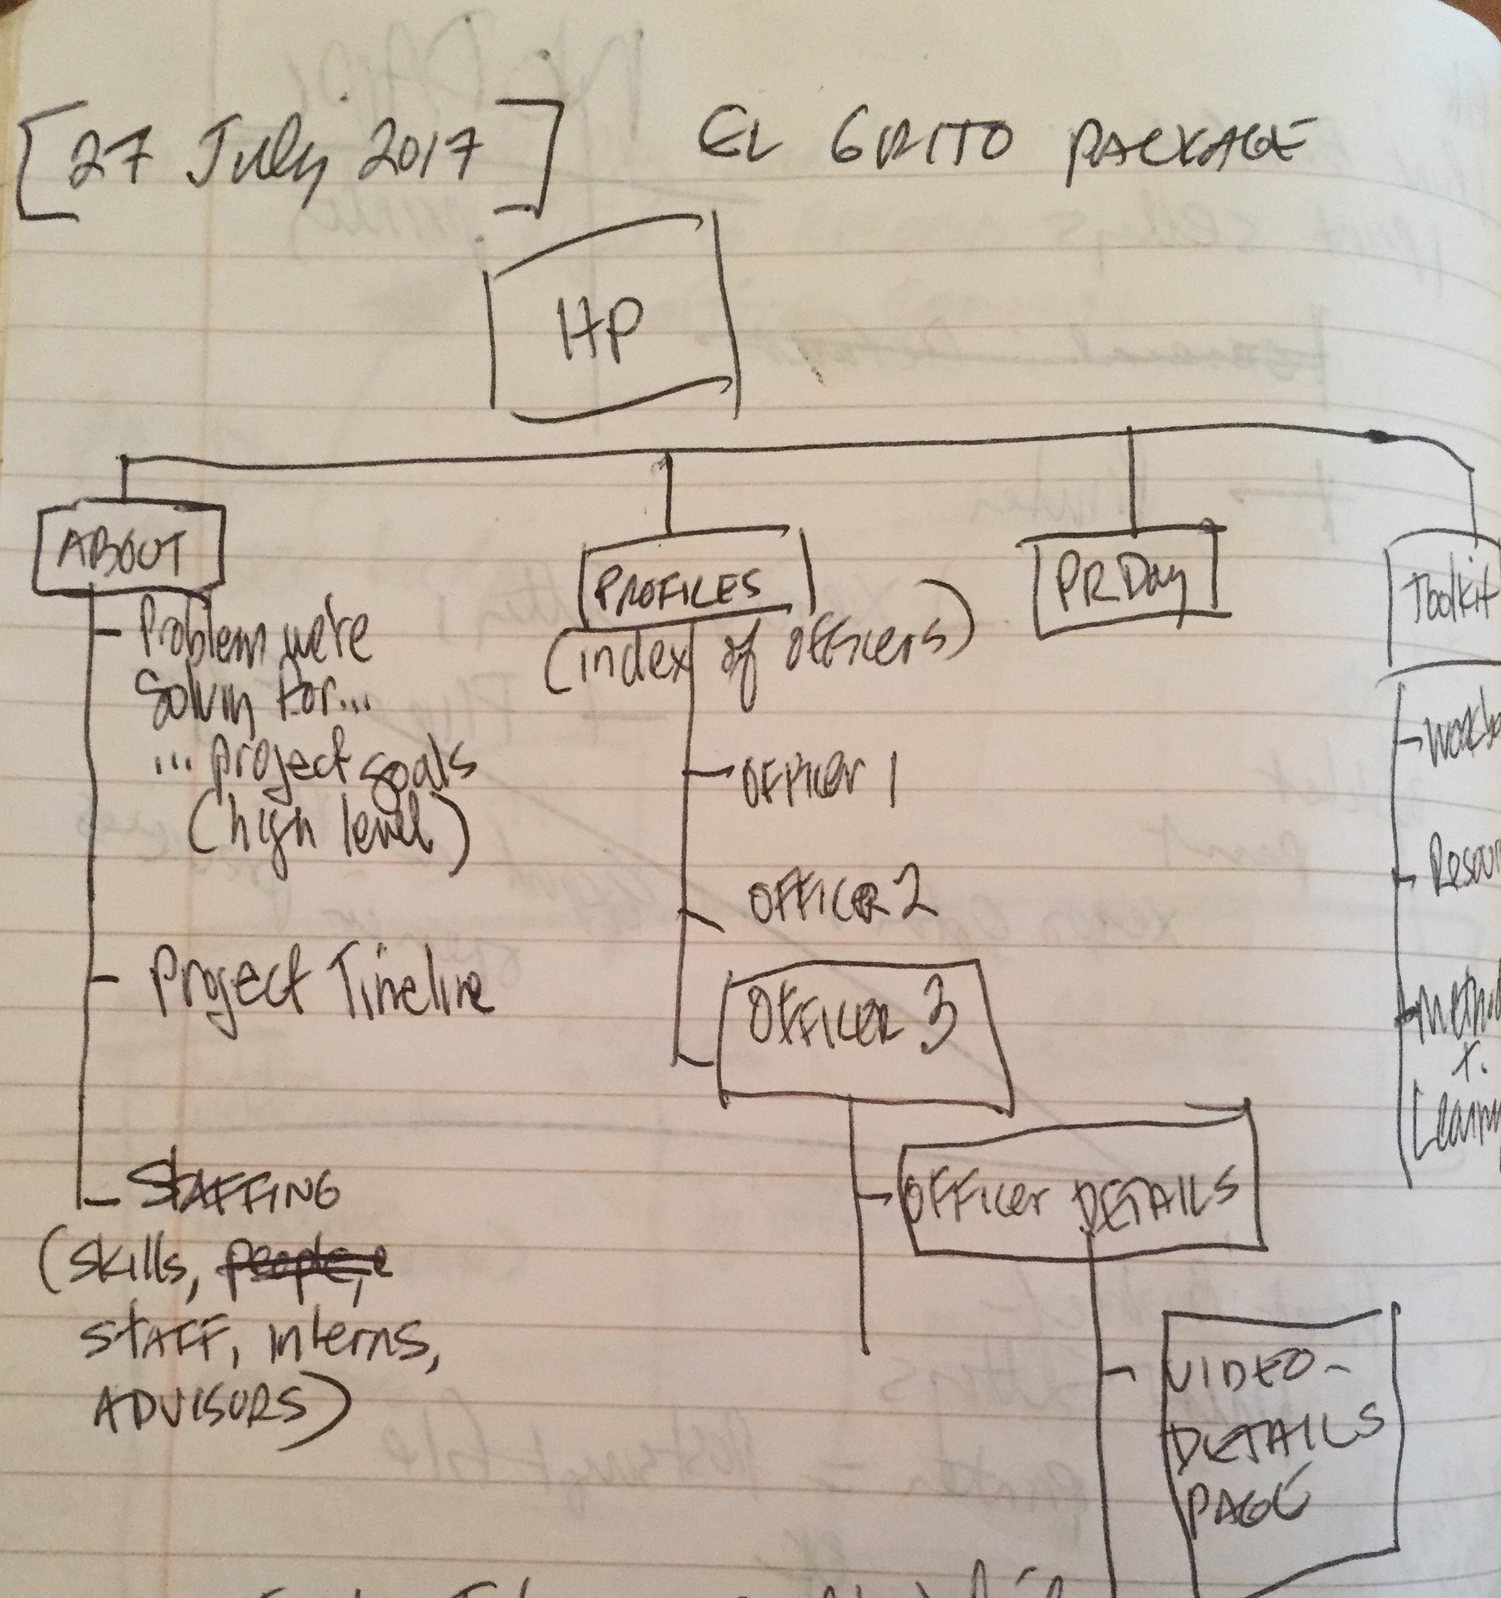 [27 July 2017] EL GRITO PACKAGE
HP
ABOUT
Problem we're
Solvin for...
... project goals
(high level)
Project Timeline
STAFFING
(skills, people,
STAFF, interns,
ADVISORS)
PROFILES
(index of officers)
OFFICER 1
OFFICER 2
OFFICER 3
OFFICER DETAILS
VIDEO-
DETAILS
PAGE
PR Day
Toolkit